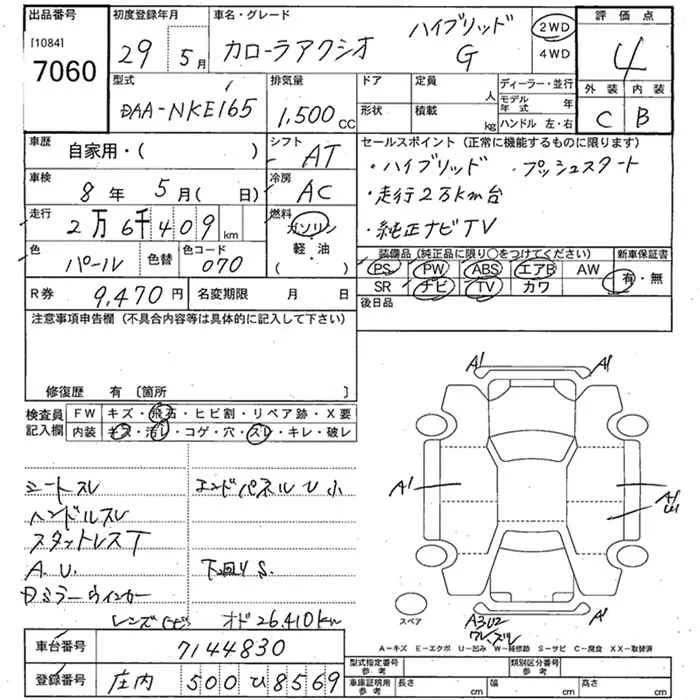 出品番号
[1084]
7060
初度登録年月
29年5月
車名・グレード
カローラアクシオ
ハイブリッド
G
2WD
4WD
評価点
4
外装 内装
C B
型式
DAA-NKE165
排気量
1,500 cc
ドア
定員
人
形状
積載
kg
ディーラー・並行
モデル年式 年
ハンドル 左・右
車歴
自家用・( )
シフト
AT
車検
8年5月( 日)
冷房
AC
走行
2万6千409km
燃料
ガソリン
軽・油
( )
色
パール
色替
色コード
070
R券
9,470円
名変期限 月 日
セールスポイント(正常に機能するものに限ります)
・ハイブリッド ・プッシュスタート
・走行2万km台
・純正ナビTV
装備品(純正品に限り○をつけてください)
新車保証書
PS PW ABS エアB AW
SR ナビ TV カワ
有・無
後日品
注意事項申告欄(不具合内容等は具体的に記入して下さい)
修復歴 有〔箇所 〕
検査員記入欄
FW キズ・飛石・ヒビ割・リペア跡・X要
内装 キズ・汚レ・コゲ・穴・スレ・キレ・破レ
シートスレ
ハンドルスレ
スタットレスT
A.U.
Dミラーウィンカー
レンズヒビ
エンドパネルU小
下回りS.
オド26.410km
A1
A1
A1
A1
A1
A3U2
スペア
A-キズ E-エクボ U-凹み W-補修跡 S-サビ C-腐食 XX-取替済
車台番号
7144830
登録番号
庄内 500 ひ 8569
型式指定番号
参考
類別区分番号
参考
車庫証明用
参考
長さ cm
幅 cm
高さ cm